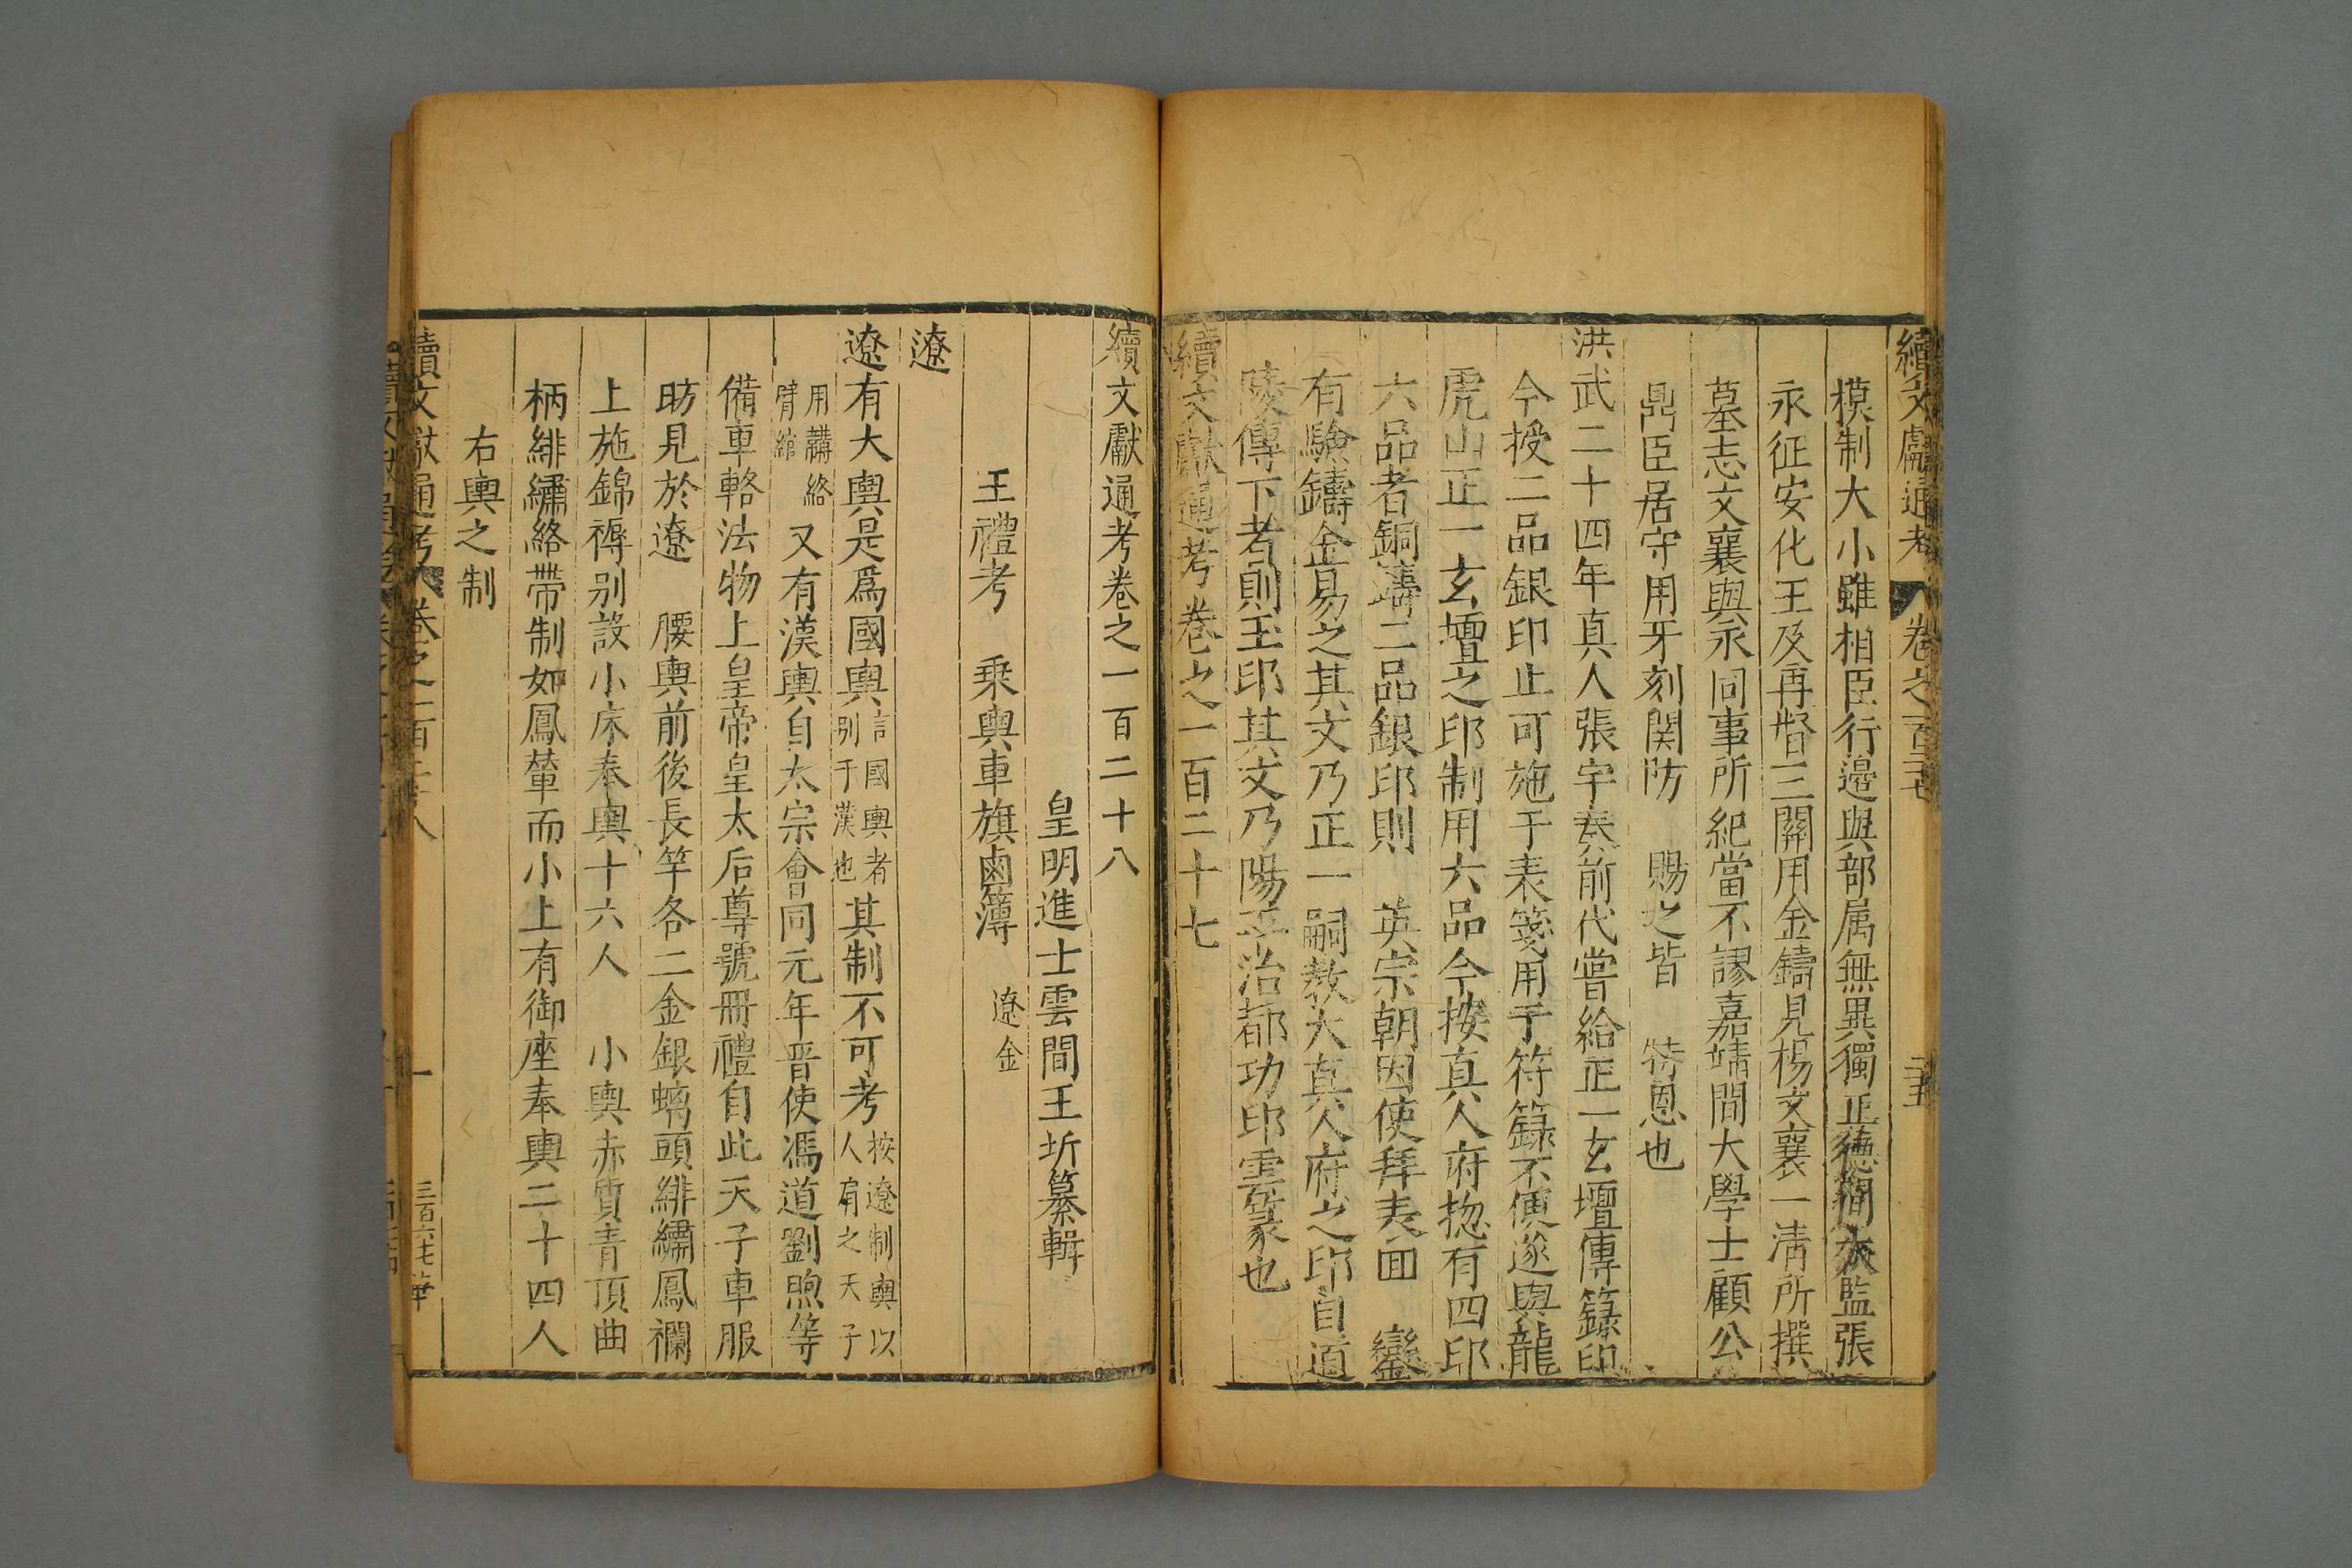 續文獻通考 卷之一百二十七 二五
模制大小雖相臣行邊與部属無異獨正德間太監張
永征安化王及再督三關用金鑄見楊文襄一清所撰
墓志文襄與永同事所紀當不謬嘉靖間大學士顧公
鼎臣居守用牙刻関防 賜之皆 特恩也
洪武二十四年真人張宇奏前代嘗給正一玄壇傳籙印
今授二品銀印止可施于表箋用于符籙不便遂與龍
虎山正一玄壇之印制用六品今按真人府揔有四印
六品者銅鑄二品銀印則 英宗朝因使拜表面 鑾
有驗鑄金易之其文乃正一嗣教大真人府之印自道
陵傳下者則玉印其文乃陽平治都功印雲篆也
續文獻通考卷之一百二十七
續文獻通考卷之一百二十八
皇明進士雲間王圻纂輯
王禮考 乗輿車旗鹵簿 遼金
遼
遼有大輿是爲國輿言國輿者别于漢也其制不可考按遼制輿以人肩之天子
用韝絡臂綰又有漢輿自太宗會同元年晋使馮道劉煦等
備車輅法物上皇帝皇太后尊號冊禮自此天子車服
昉見於遼 腰輿前後長竿各二金銀螭頭緋繡鳳襴
上施錦褥别設小床奉輿十六人 小輿赤質青頂曲
柄緋繡絡帶制如鳳輦而小上有御座奉輿二十四人
右輿之制
續文獻通考 卷之一百二十八 一 三百六七華